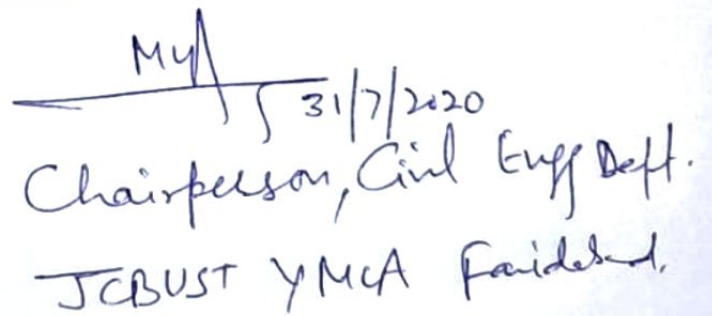 31/7/2020
Chairperson, Civil Engg Deptt.
JCBUST YMCA Faridabad.